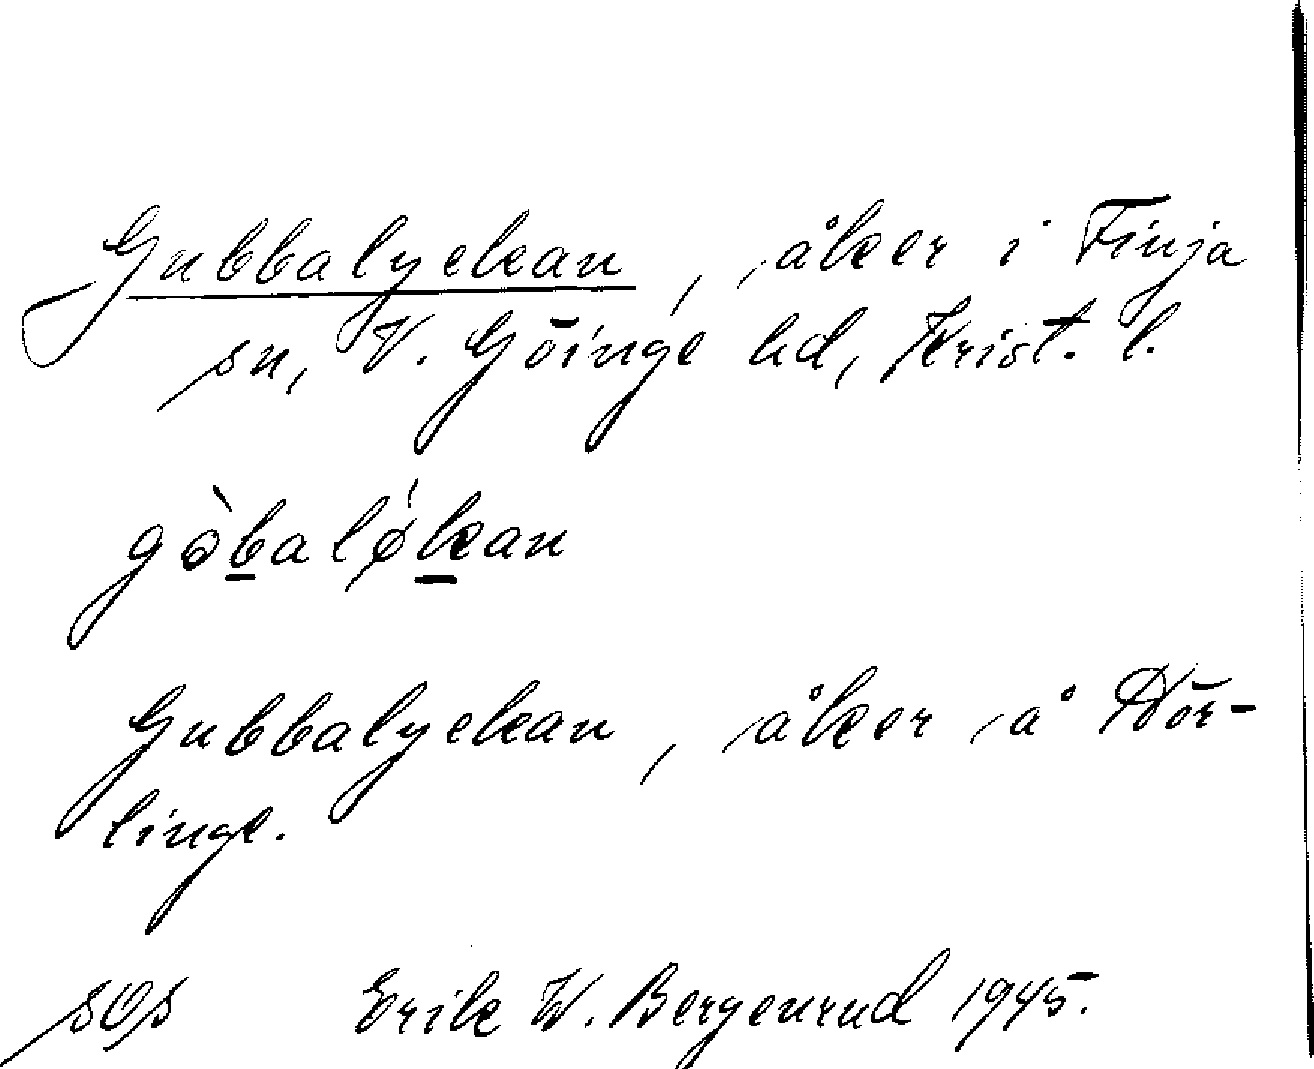 Gubbalyckan, åker i Finja
sn, V. Göinge hd, Krist. l.
gòbalǿkan
Gubbalyckan, åker å Nör-
linge.
Erik W. Bergenrud 1945.